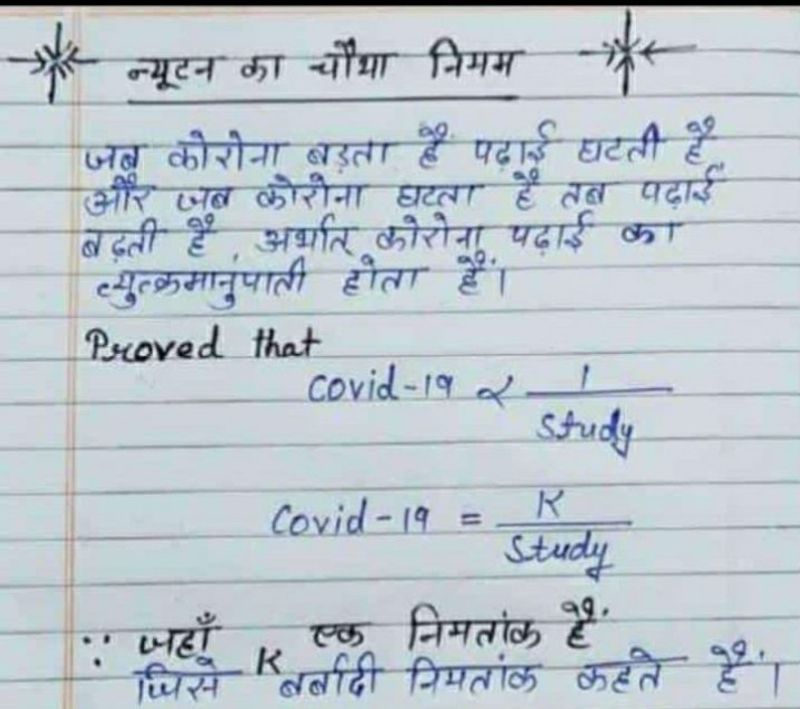 न्यूटन का चौथा नियम
जब कोरोना बड़ता हैं पढ़ाई घटती है
और जब कोरोना घटता है तब पढ़ाई
बढ़ती है, अर्थात् कोरोना पढ़ाई का
व्युत्क्रमानुपाती होता हैं।
Proved that
Covid-19 ∝ 1/Study
Covid-19 = K/Study
∵ जहाँ K एक नियतांक हैं
जिसे बर्बादी नियतांक कहते हैं।